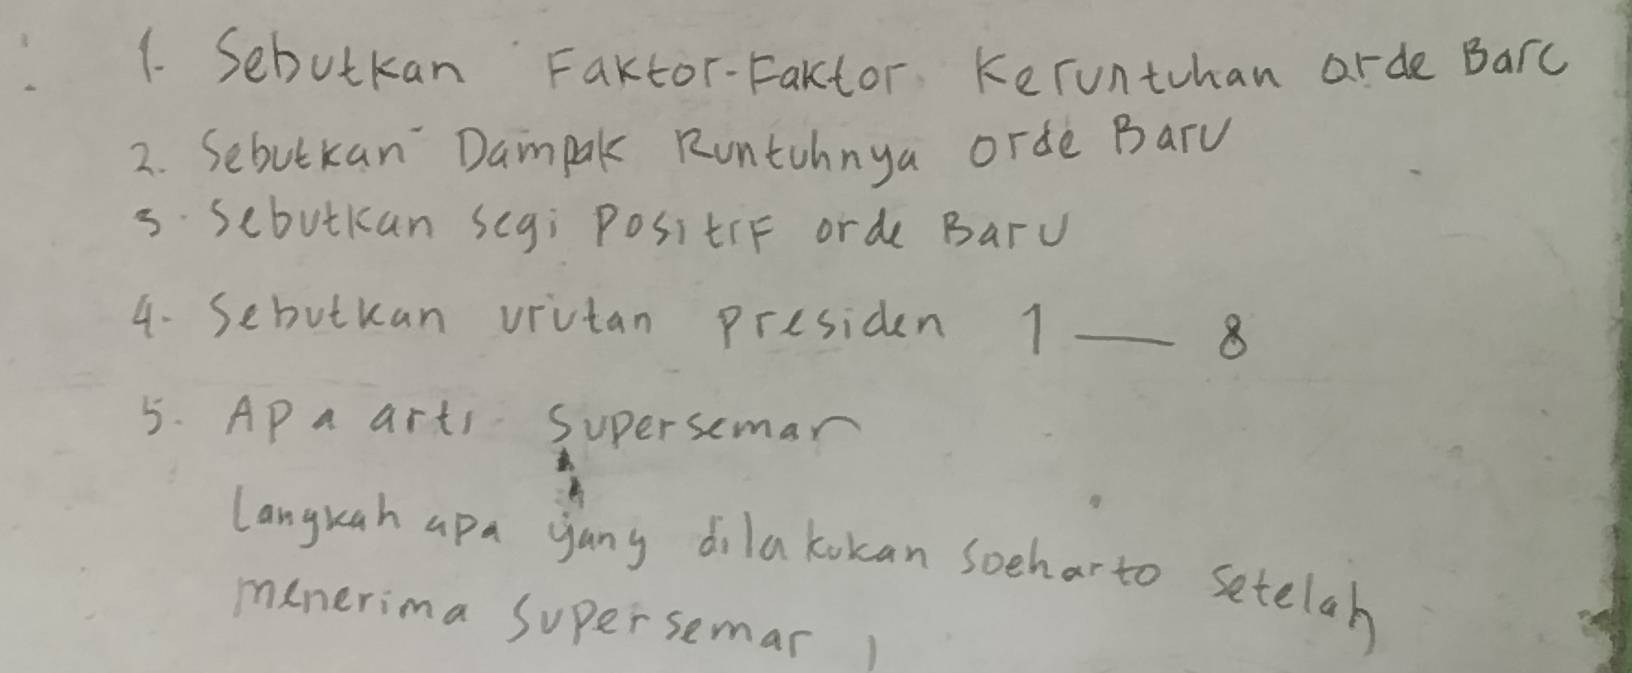 1. Sebutkan Faktor-Faktor Keruntuhan orde Baru
2. Sebutkan Dampak Runtuhnya orde Baru
3. Sebutkan segi Positif orde Baru
4. Sebutkan urutan presiden 1 — 8
5. Apa arti Supersemar
Langkah apa yang dilakukan Soeharto setelah
menerima Supersemar